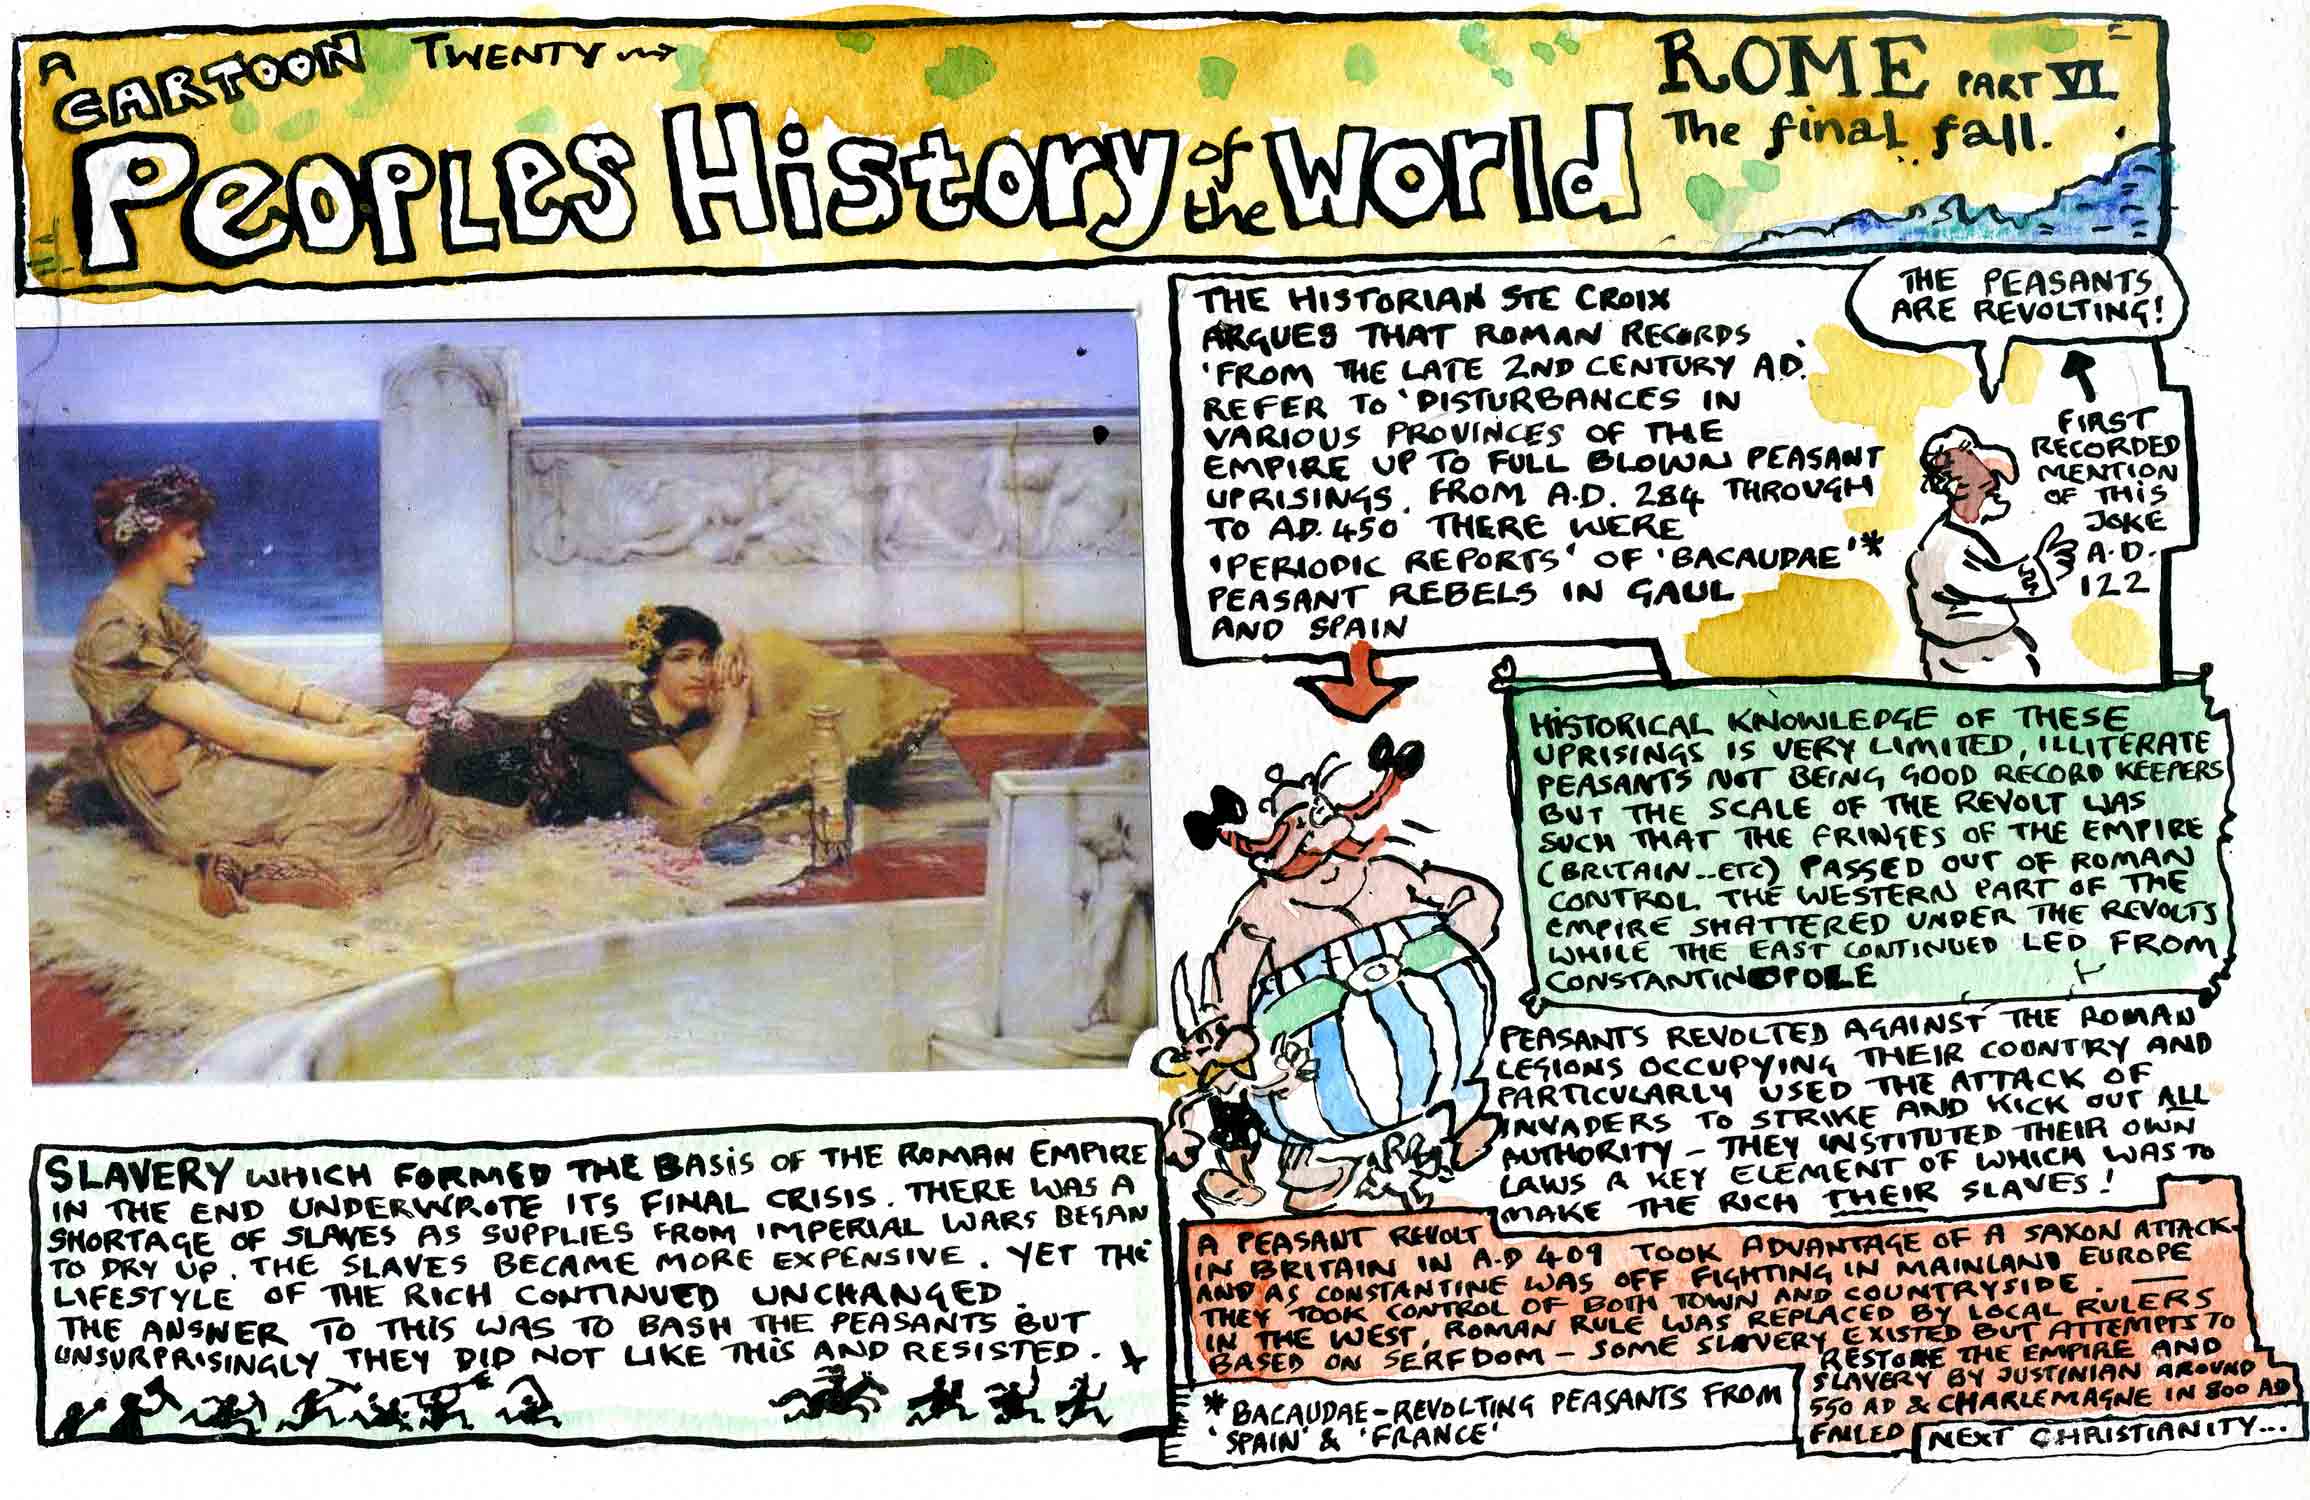 A
CARTOON TWENTY
PEOPLES HISTORY of the WORLD
ROME PART VI
The final fall.
THE HISTORIAN STE CROIX
ARGUES THAT ROMAN RECORDS
'FROM THE LATE 2ND CENTURY A.D.
REFER TO 'DISTURBANCES IN
VARIOUS PROVINCES OF THE
EMPIRE UP TO FULL BLOWN PEASANT
UPRISINGS. FROM A.D. 284 THROUGH
TO A.D. 450 THERE WERE
'PERIODIC REPORTS' OF 'BACAUDAE'*
PEASANT REBELS IN GAUL
AND SPAIN
THE PEASANTS
ARE REVOLTING!
FIRST
RECORDED
MENTION
OF THIS
JOKE
A.D.
122
HISTORICAL KNOWLEDGE OF THESE
UPRISINGS IS VERY LIMITED, ILLITERATE
PEASANTS NOT BEING GOOD RECORD KEEPERS
BUT THE SCALE OF THE REVOLT WAS
SUCH THAT THE FRINGES OF THE EMPIRE
(BRITAIN...ETC) PASSED OUT OF ROMAN
CONTROL THE WESTERN PART OF THE
EMPIRE SHATTERED UNDER THE REVOLTS
WHILE THE EAST CONTINUED LED FROM
CONSTANTINOPOLE
PEASANTS REVOLTED AGAINST THE ROMAN
LEGIONS OCCUPYING THEIR COUNTRY AND
PARTICULARLY USED THE ATTACK OF
INVADERS TO STRIKE AND KICK OUT ALL
AUTHORITY - THEY INSTITUTED THEIR OWN
LAWS A KEY ELEMENT OF WHICH WAS TO
MAKE THE RICH THEIR SLAVES!
SLAVERY WHICH FORMED THE BASIS OF THE ROMAN EMPIRE
IN THE END UNDERWROTE ITS FINAL CRISIS. THERE WAS A
SHORTAGE OF SLAVES AS SUPPLIES FROM IMPERIAL WARS BEGAN
TO DRY UP. THE SLAVES BECAME MORE EXPENSIVE. YET THE
LIFESTYLE OF THE RICH CONTINUED UNCHANGED.
THE ANSWER TO THIS WAS TO BASH THE PEASANTS BUT
UNSURPRISINGLY THEY DID NOT LIKE THIS AND RESISTED.
A PEASANT REVOLT
IN BRITAIN IN A.D 409 TOOK ADVANTAGE OF A SAXON ATTACK
AND AS CONSTANTINE WAS OFF FIGHTING IN MAINLAND EUROPE
THEY TOOK CONTROL OF BOTH TOWN AND COUNTRYSIDE.
IN THE WEST, ROMAN RULE WAS REPLACED BY LOCAL RULERS
BASED ON SERFDOM - SOME SLAVERY EXISTED BUT ATTEMPTS TO
RESTORE THE EMPIRE AND
SLAVERY BY JUSTINIAN AROUND
550 AD & CHARLEMAGNE IN 800 AD
FAILED
*BACAUDAE - REVOLTING PEASANTS FROM
'SPAIN' & 'FRANCE'
NEXT CHRISTIANITY...